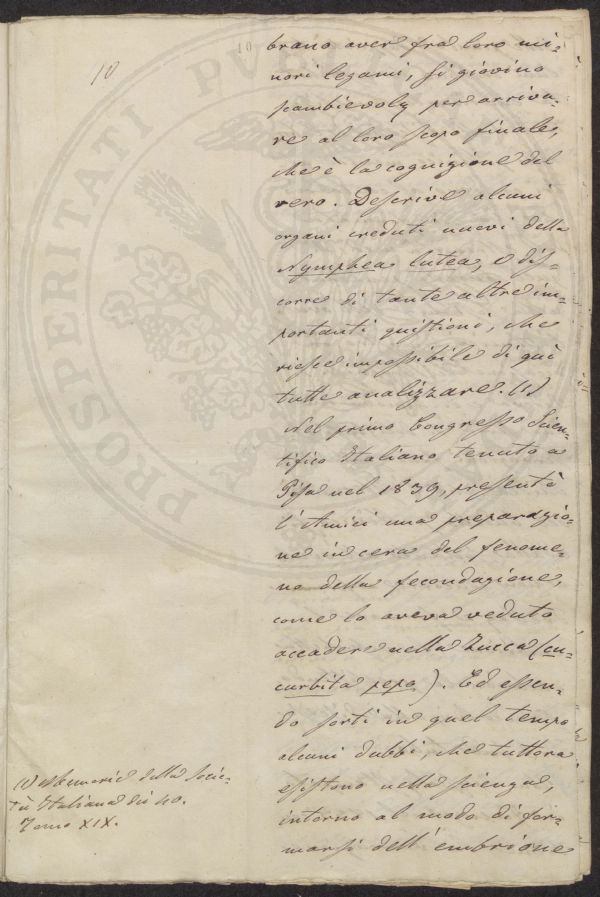 10
10
brano aver fra loro mi-
nori legami, si giovino
scambievoly per arriva-
re al loro scopo finale,
che è la cognizione del
vero. Descrive alcuni
organi creduti nuovi della
Nymphea lutea, e dis-
corre di tante altre im-
portanti quistioni, che
riesce impossibile di quì
tutte analizzare. (1)
Nel primo Congresso Scien-
tifico Italiano tenuto a
Pisa nel 1839, presentò
l'Amici una preparazio-
ne in cera del fenome-
no della fecondazione,
come lo aveva veduto
accadere nella Zucca (cu-
curbita pepo). Ed essen-
do sorti in quel tempo
alcuni dubbi, che tuttora
esistono nella scienza,
intorno al modo di for-
marsi dell'embrione
(1) Memorie della Socie-
tà Italiana dei 40.
Tomo XIX.
PROSPERITATI PVBLI